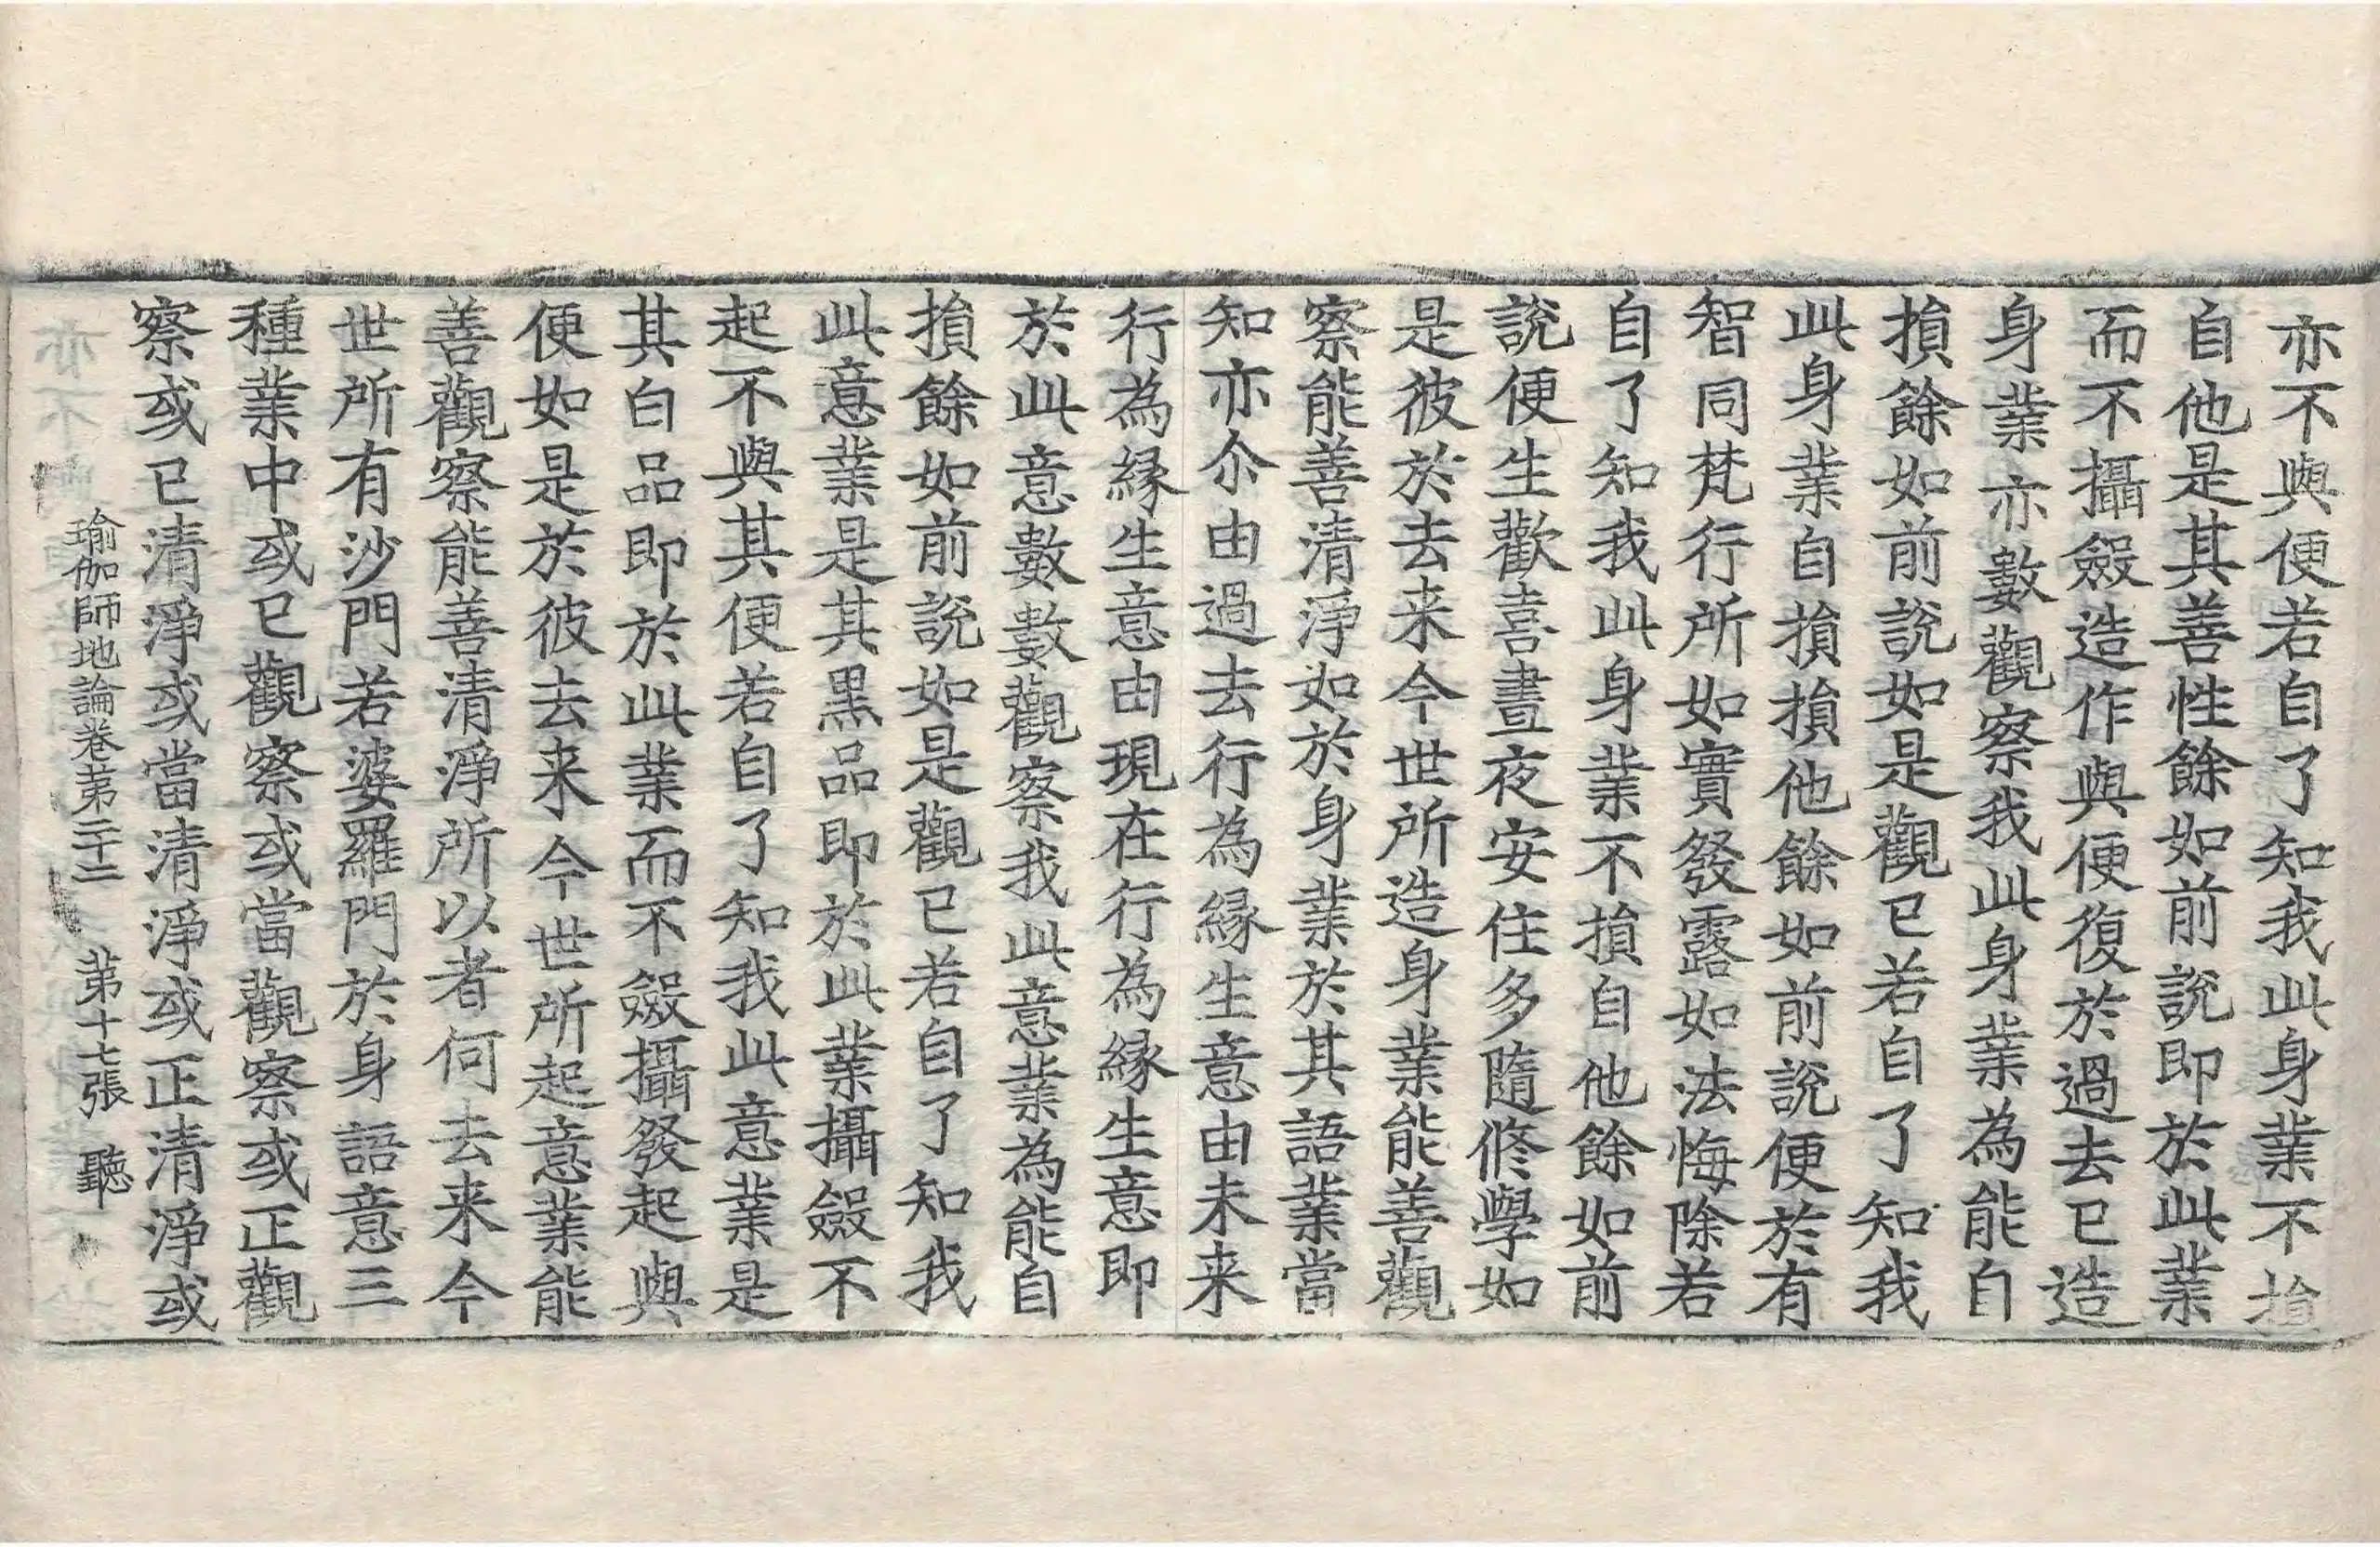 亦不與便若自了知我此身業不損
自他是其善性餘如前說即於此業
而不攝斂造作與便復於過去已造
身業亦數觀察我此身業為能自
損餘如前說如是觀已若自了知我
此身業自損損他餘如前說便於有
智同梵行所如實發露如法悔除若
自了知我此身業不損自他餘如前
說便生歡喜晝夜安住多隨修學如
是彼於去来今世所造身業能善觀
察能善清淨如於身業於其語業當
知亦尒由過去行為緣生意由未来
行為緣生意由現在行為緣生意即
於此意數數觀察我此意業為能自
損餘如前說如是觀已若自了知我
此意業是其黑品即於此業攝斂不
起不與其便若自了知我此意業是
其白品即於此業而不斂攝發起與
便如是於彼去来今世所起意業能
善觀察能善清淨所以者何去来今
世所有沙門若婆羅門於身語意三
種業中或已觀察或當觀察或正觀
察或已清淨或當清淨或正清淨或
瑜伽師地論卷第二十二 第十七張 聽